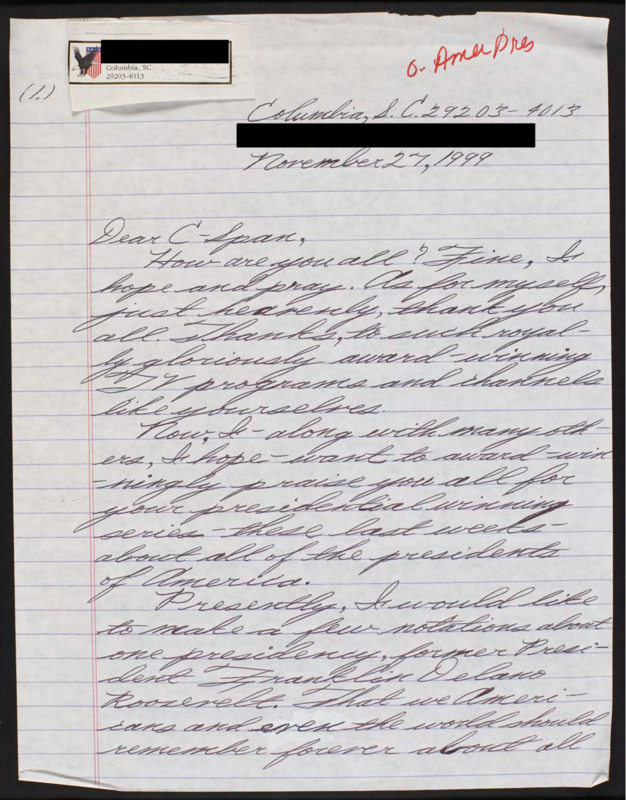 Columbia, SC
29203-4013
o- Amer Pres
(1.)
Columbia, S.C. 29203-4013
November 27, 1999
Dear C-Span,
How are you all? Fine, I
hope and pray. As for myself,
just heavenly, thank you
all. Thanks, to such royal-
ly gloriously award-winning
TV programs and channels
like yourselves.
Now, I-along with many oth-
ers, I hope-want to award-win
-ningly praise you all for
your presidential winning
series-these last weeks-
about all of the presidents
of America.
Presently, I would like
to make a few notations about
one presidency, former Presi-
dent Franklin Delano
Roosevelt. That we Ameri-
cans and even the world should
remember forever about all